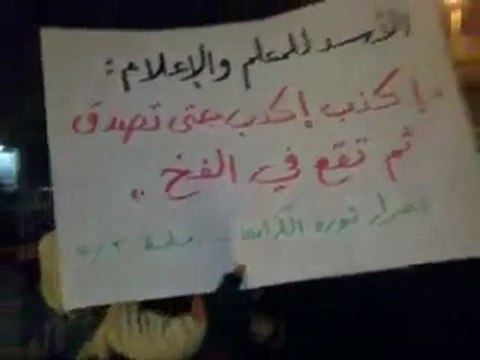 الأسد للمعلم والإعلام :
إكذب إكذب حتى تصدق
ثم تقع في الفخ ..
احرار ثورة الكرامة